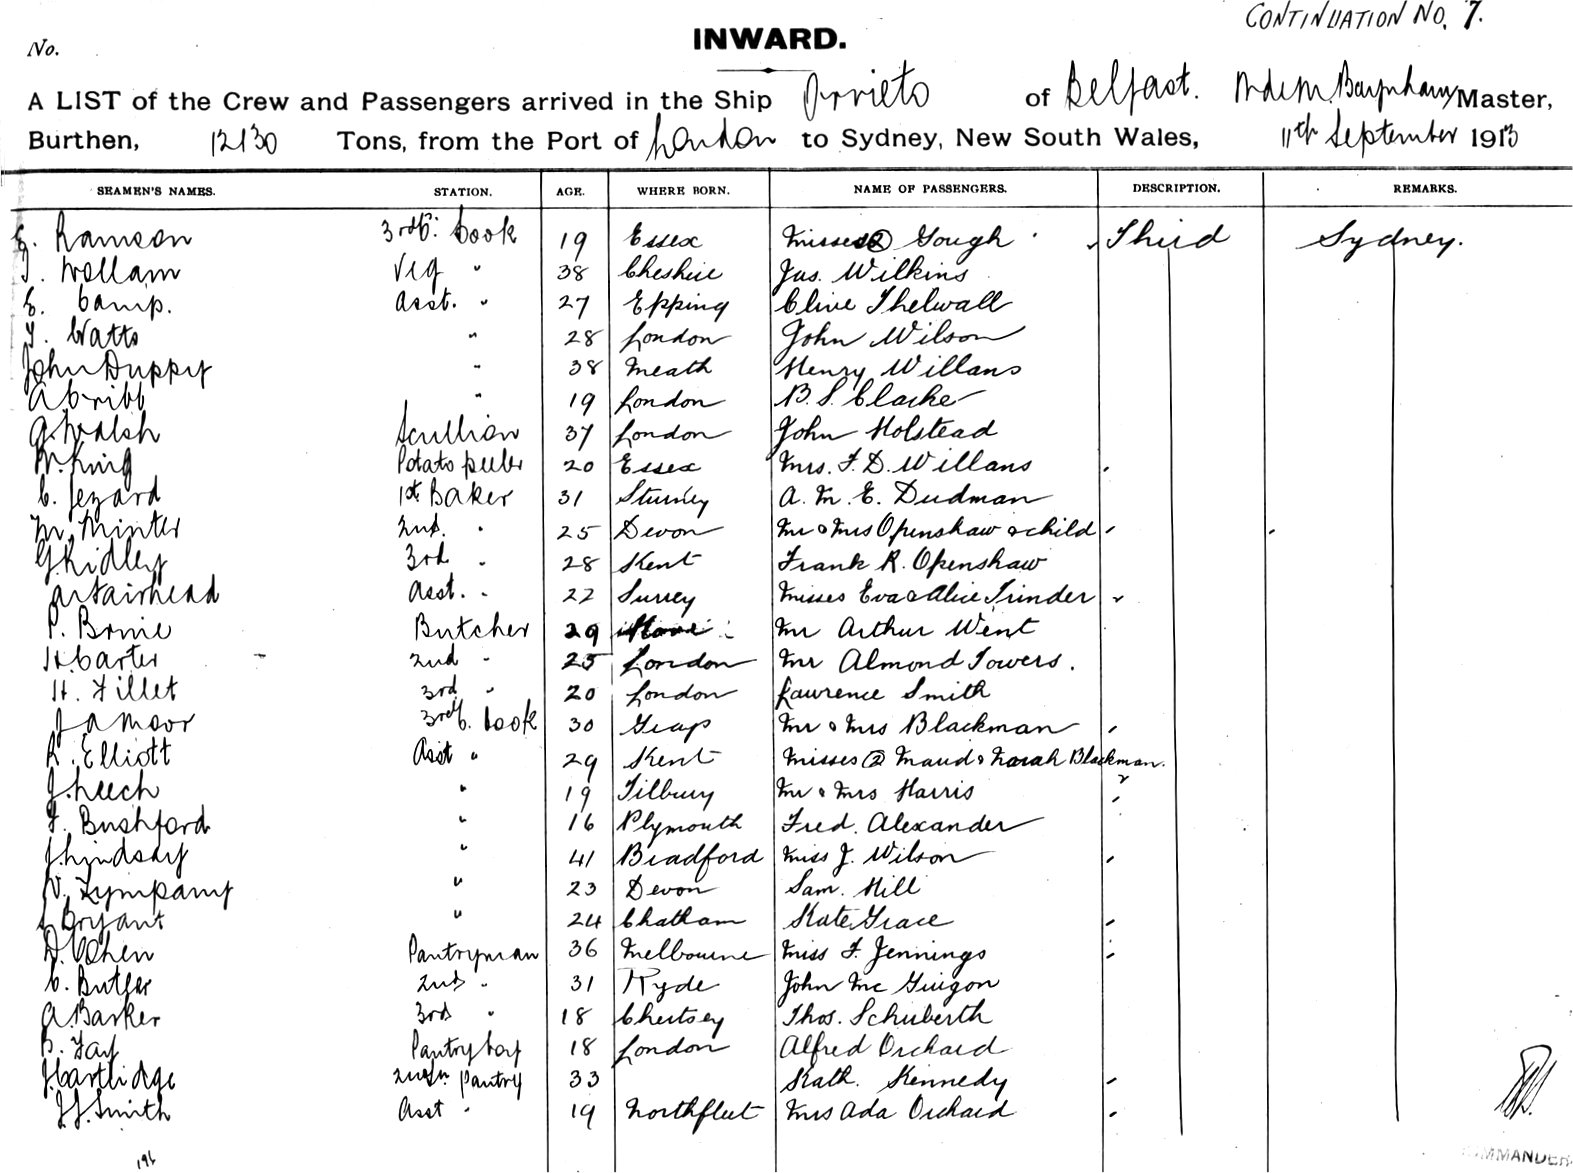 CONTINUATION NO. 7.
No.
INWARD.
A LIST of the Crew and Passengers arrived in the Ship Orvieto of Belfast. Master,
Burthen, 12130 Tons, from the Port of London to Sydney, New South Wales, 11th September 1913
SEAMEN'S NAMES. STATION. AGE. WHERE BORN. NAME OF PASSENGERS. DESCRIPTION. REMARKS.
E. Ramson 3rd C: Cook 19 Essex Misses 2 Gough Third Sydney.
T. Wollam Veg " 38 Cheshire Jas. Wilkins
E. Camp. Asst. " 27 Epping Clive Thelwall
T. Watts " 28 London John Wilson
John Duppy " 38 Meath Henry Willans
A Cribb " 19 London B. S. Clarke
G. Walsh Scullion 37 London John Holstead
W. King Potato peeler 20 Essex Mrs. F. D. Willans
C. Jezard 1st Baker 31 Sturrey A. M. E. Dudman
M. Minter 2nd. " 25 Devon Mr & Mrs Openshaw & child
G Ridley 3rd " 28 Kent Frank R. Openshaw
A Fairhead Asst. " 22 Surrey Misses Eva & Alice Trinder 2
P. Bonie Butcher 29 Mr Arthur Went
H. Carter 2nd " 25 London Mr Almond Towers.
H. Fillet 3rd " 20 London Laurence Smith
J A Moor 3rd C. Cook 30 Mr & Mrs Blackman
R. Elliott Asst " 29 Kent Misses 2 Maud & Norah Blackman. 2
J. Leech " 19 Tilbury Mr & Mrs Harris
F. Bushford " 16 Plymouth Fred. Alexander
J. Lindsay " 41 Bradford Miss J. Wilson
W. Tympany " 23 Devon Sam. Hill
Bryant " 24 Chatham Kate Grace
D. Cohen Pantryman 36 Melbourne Miss F. Jennings
C. Butler 2nd " 31 Ryde John Mc Guigon
A Barker 3rd " 18 Chertsey Thos. Schuberth
B. Fay Pantry boy 18 London Alfred Orchard
J. Cartlidge pantry 33 Kath. Kennedy
J. J. Smith Asst " 19 Northfleet Mrs Ada Orchard
196
COMMANDER